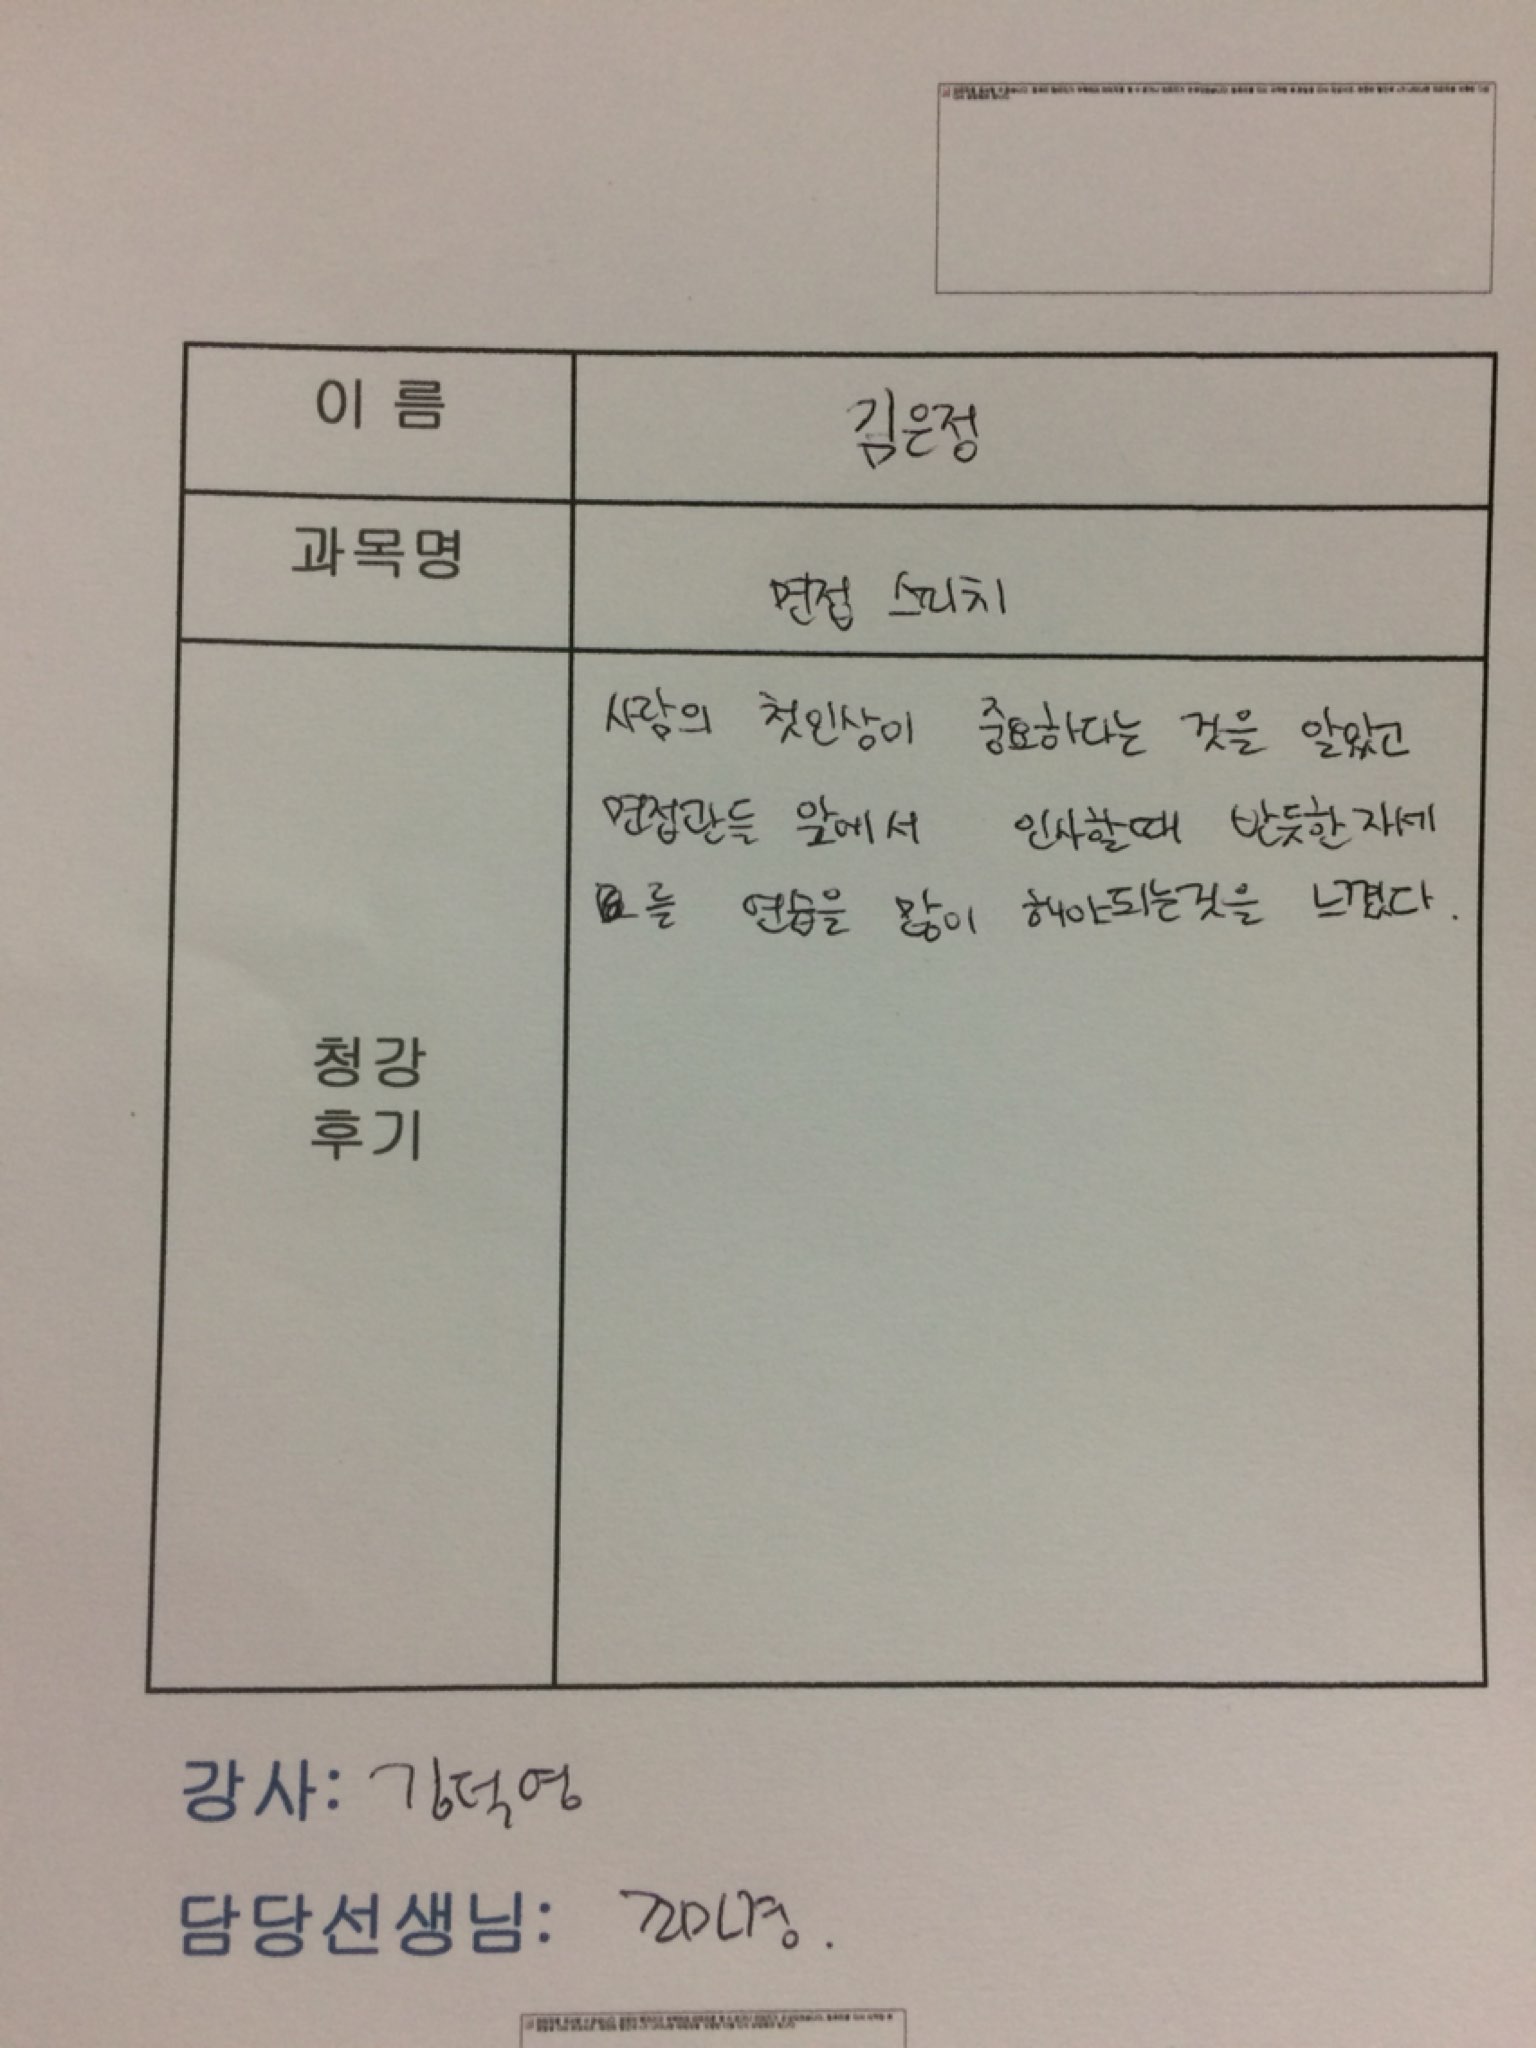 이 름
김은정
과목명
면접 스피치
사람의 첫인상이 중요하다는 것을 알았고
면접관들 앞에서 인사할때 반듯한자세
를 연습을 많이 해야되는것을 느꼈다.
청강
후기
강사: 김덕영
담당선생님: